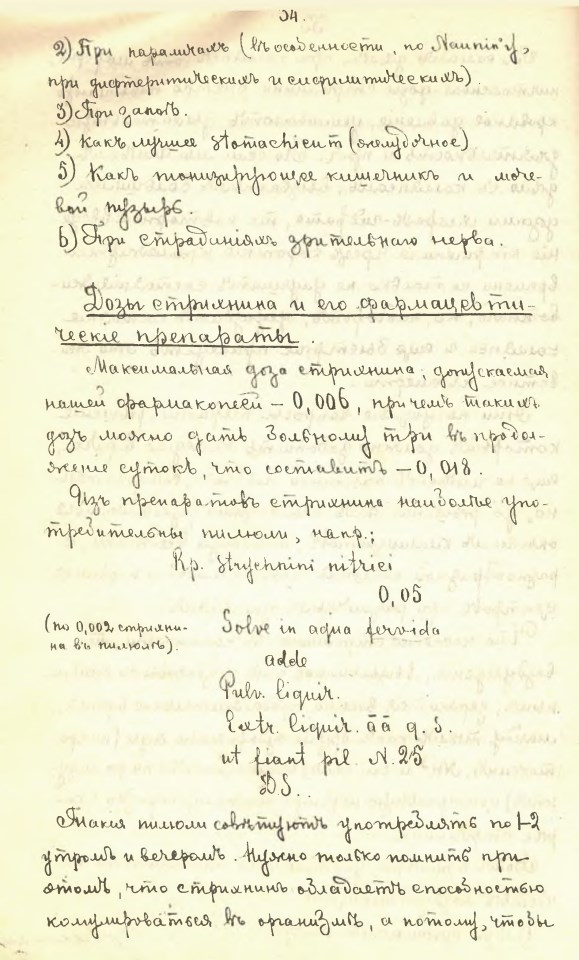 54.
2) При параличахъ (въ особенности, по Naunin'у,
при дифтеритическихъ и сифилитическихъ).
3) При запоѣ.
4) Какъ лучшее stomachicum (желудочное)
5) Какъ тонизирующее кишечникъ и моче-
вой пузырь.
6) При страданіяхъ зрительнаго нерва.
Дозы стрихнина и его фармацевти-
ческіе препараты.
Максимальная доза стрихнина, допускаемая
нашей фармакопеей – 0,006, при чемъ такихъ
дозъ можно дать больному три въ продол-
жение сутокъ, что составитъ – 0,018.
Изъ препаратовъ стрихнина наиболѣе упо-
требительны пилюли, напр.;
Rp. Strychnini nitrici
0,05
(по 0,002 стрихни-
на въ пилюлѣ).
Solve in aqua fervida
adde
Pulv. liquir.
Extr. liquir. āā q. s.
ut fiant pil. N. 25
DS.
Такия пилюли совѣтуютъ употреблять по 1-2
утромъ и вечеромъ. Нужно только помнить при
этомъ, что стрихнинъ обладаетъ способностью
комулироваться въ организмѣ, а потому, чтобы